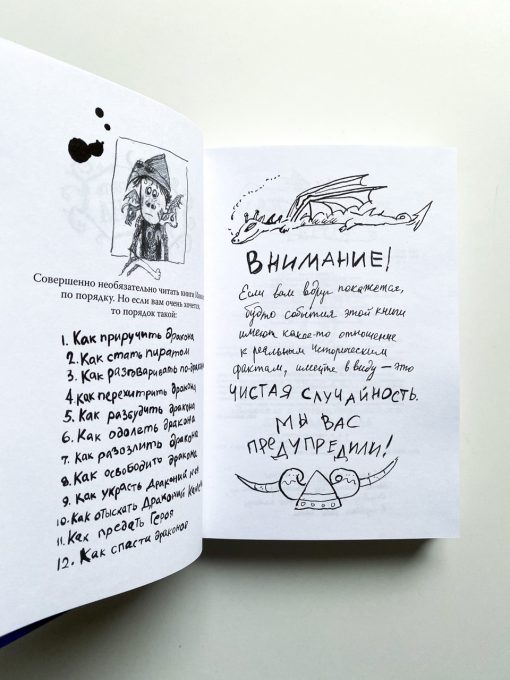 Совершенно необязательно читать книги
по порядку. Но если вам очень хочется,
то порядок такой:
1. Как приручить дракона
2. Как стать пиратом
3. Как разговаривать по-
4. Как перехитрить дракона
5. Как разбудить дракона
6. Как одолеть дракона
7. Как разозлить дракона
8. Как освободить дракона
9. Как украсть Драконий
10. Как отыскать Драконий
11. Как предать Героя
12. Как спасти драконов
ВНИМАНИЕ!
Если вам вдруг покажется,
будто события этой книги
имеют какое-то отношение
к реальным историческим
фактам, имейте в виду – это
ЧИСТАЯ СЛУЧАЙНОСТЬ.
МЫ ВАС
ПРЕДУПРЕДИЛИ!